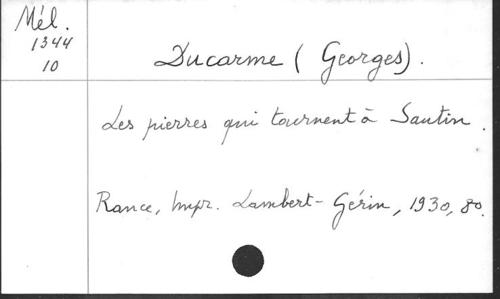 Mél.
1344
10
Ducarme (Georges).
Les pierres qui tournent à Sautin.
Rance, Impr. Lambert-Gérin, 1930, 8o.